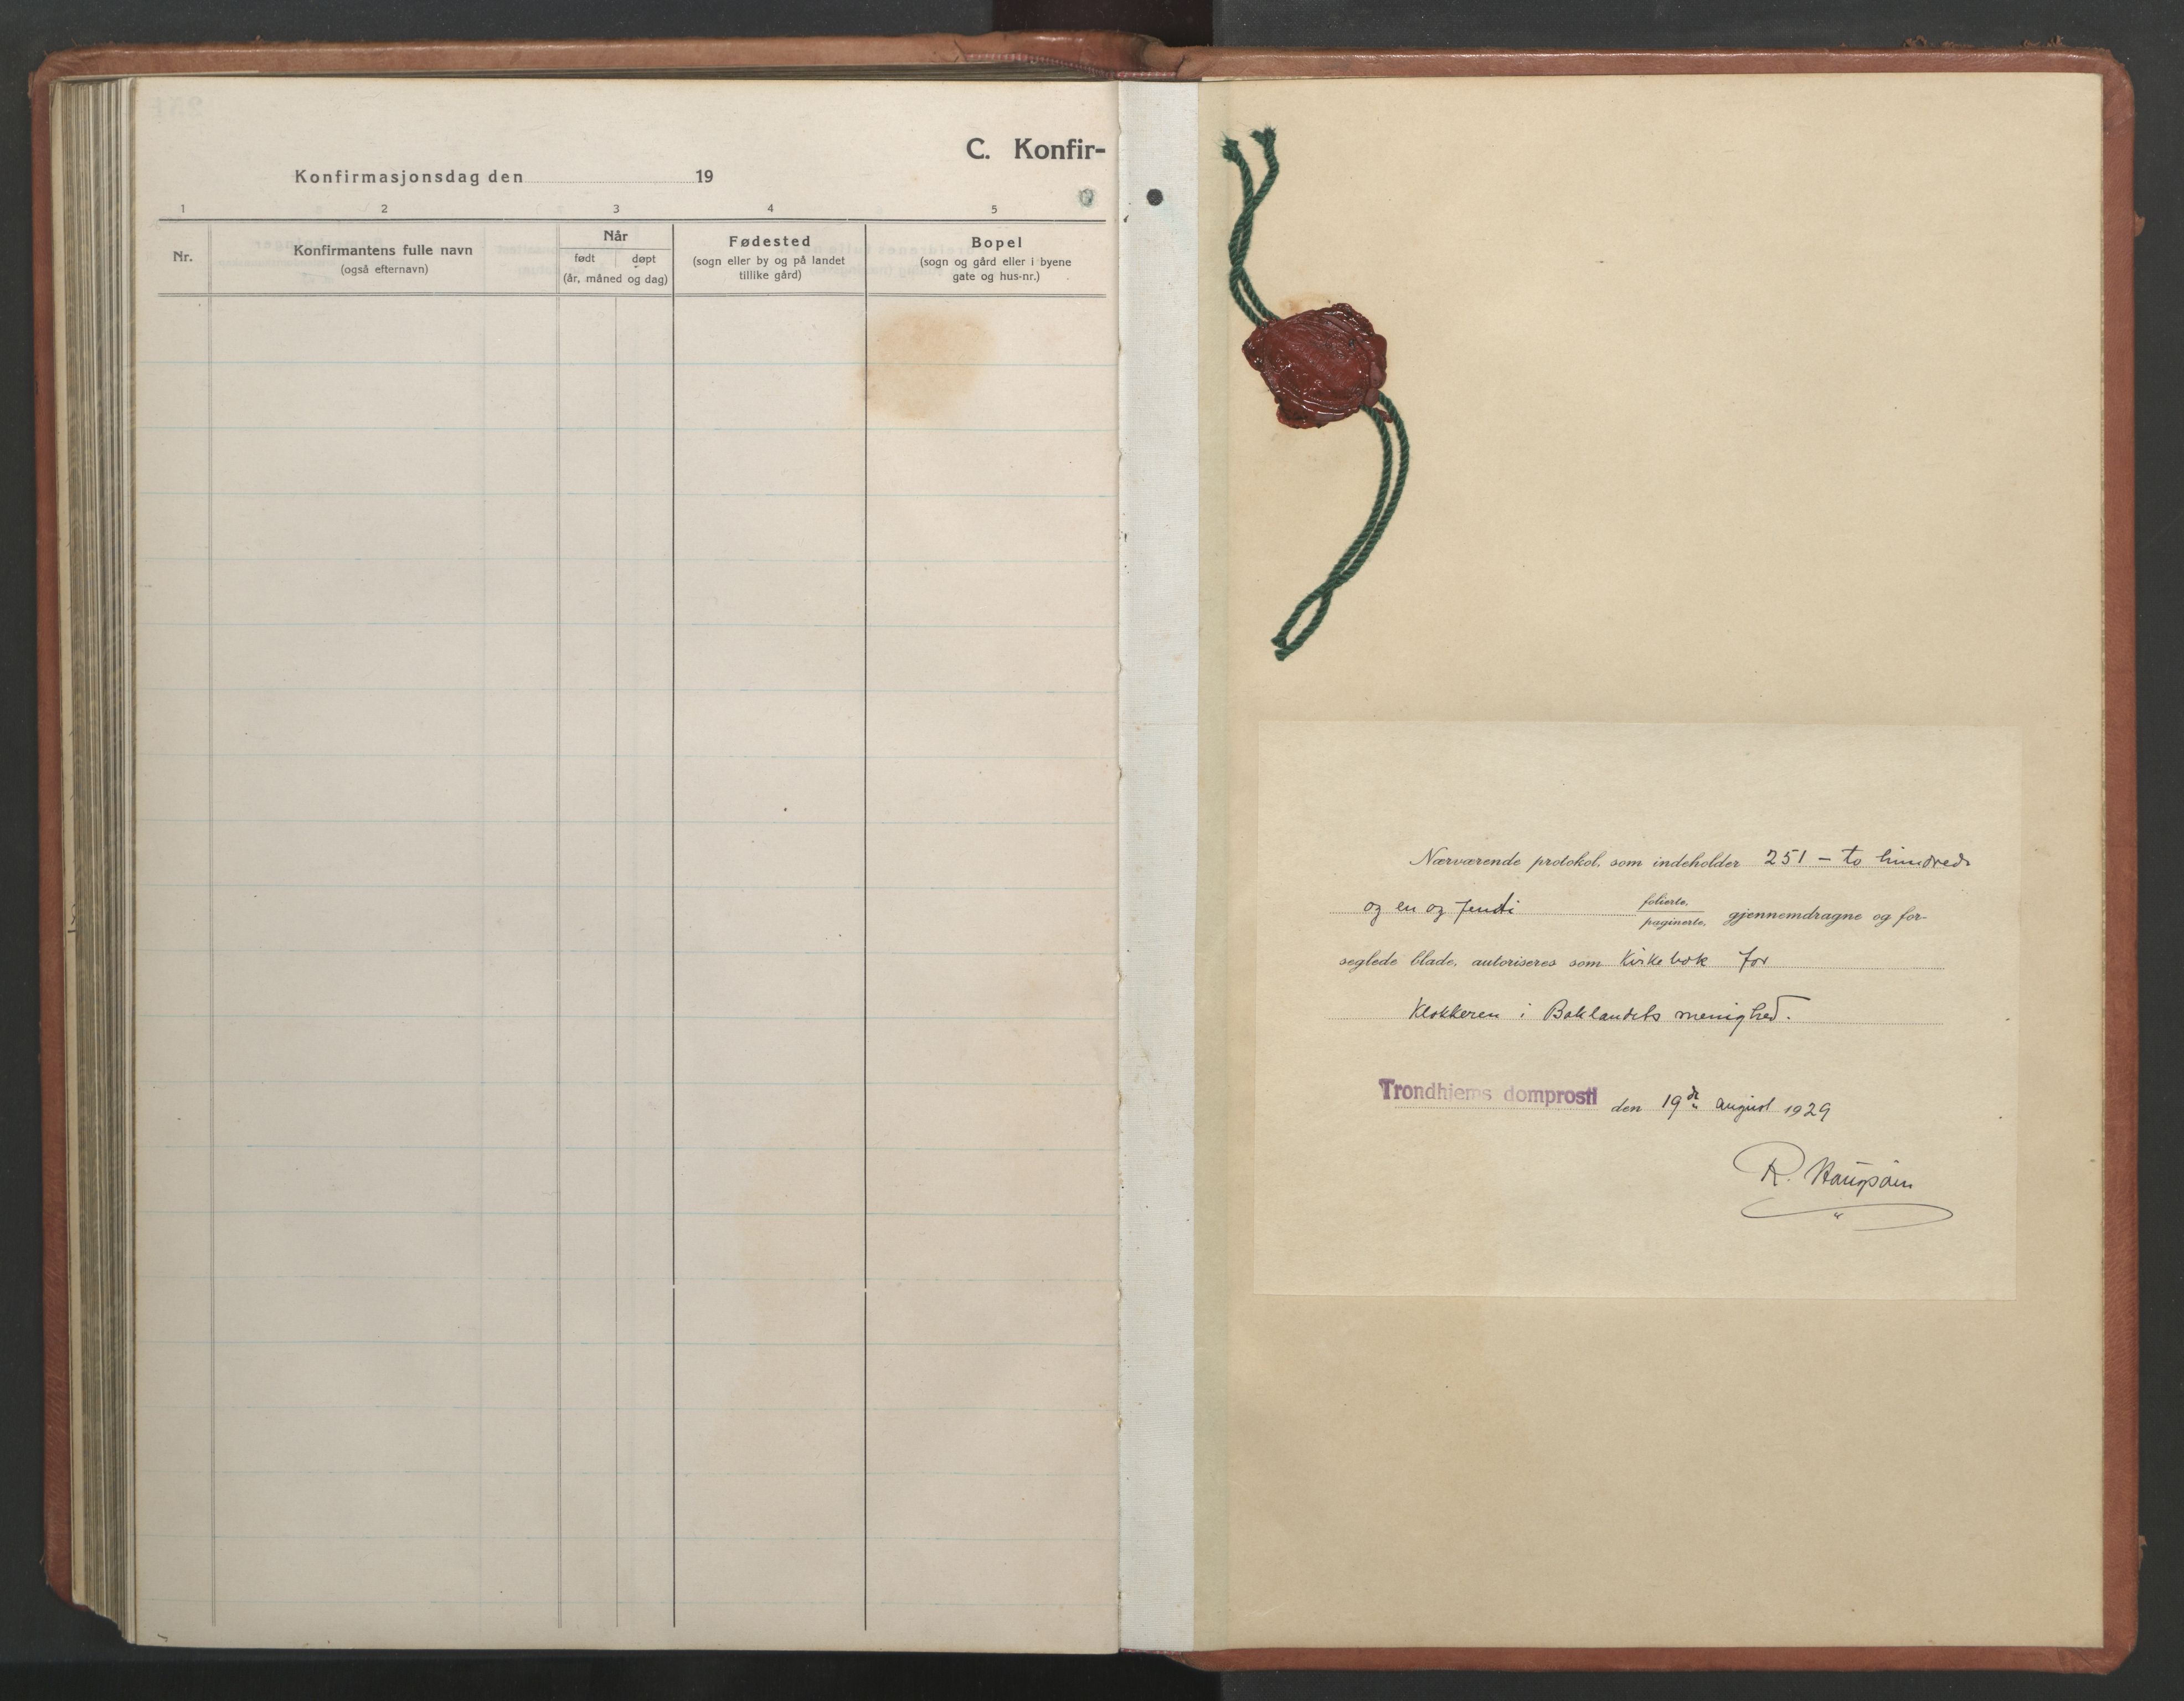 C. Konfir-
Konfirmasjonsdag den 19
1 2 3 4 5
Nr.
Konfirmantens fulle navn
(også efternavn)
Når
født døpt
(år, måned og dag)
Fødested
(sogn eller by og på landet
tillike gård)
Bopel
(sogn og gård eller i byene
gate og hus-nr.)
Nærværende protokol, som indeholder 251 – to hundrede
og en og femti folierte, paginerte, gjennemdragne og for-
seglede blade, autoriseres som Kirkebok for
Klokkeren i Baklandets menighed.
Trondhjems domprosti den 19de august 1929
R.